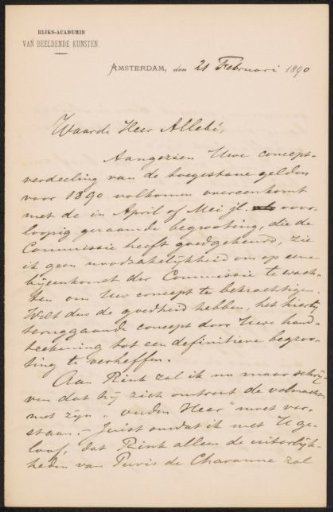 RIJKS-ACADEMIE
VAN BEELDENDE KUNSTEN.
AMSTERDAM, den 21 Februari 1890
Waarde Heer Allebé,
Aangezien Uwe concept-
verdeeling van de toegestane gelden
voor 1890 volkomen overeenkomt
met de in April of Mei jl. voor-
loopig geraamde begrooting, die de
Commissie heeft goedgekeurd, zie
ik geen noodzakelijkheid om op eene
bijeenkomst der Commissie te wach-
ten om Uw concept te bekrachtigen.
Wilt dus de goedheid hebben, het hierbij
teruggaande concept door Uwe hand-
teekening tot een definitieve begroo-
ting te verheffen.
Aan Rink zal ik nu maar schrij-
ven dat hij zich omtrent de
met zijn "ouden Heer" moet ver-
staan. - Juist omdat ik met U ge-
loof, dat Rink alleen de uiterlijk-
heden van Puvis de Chavanne zal